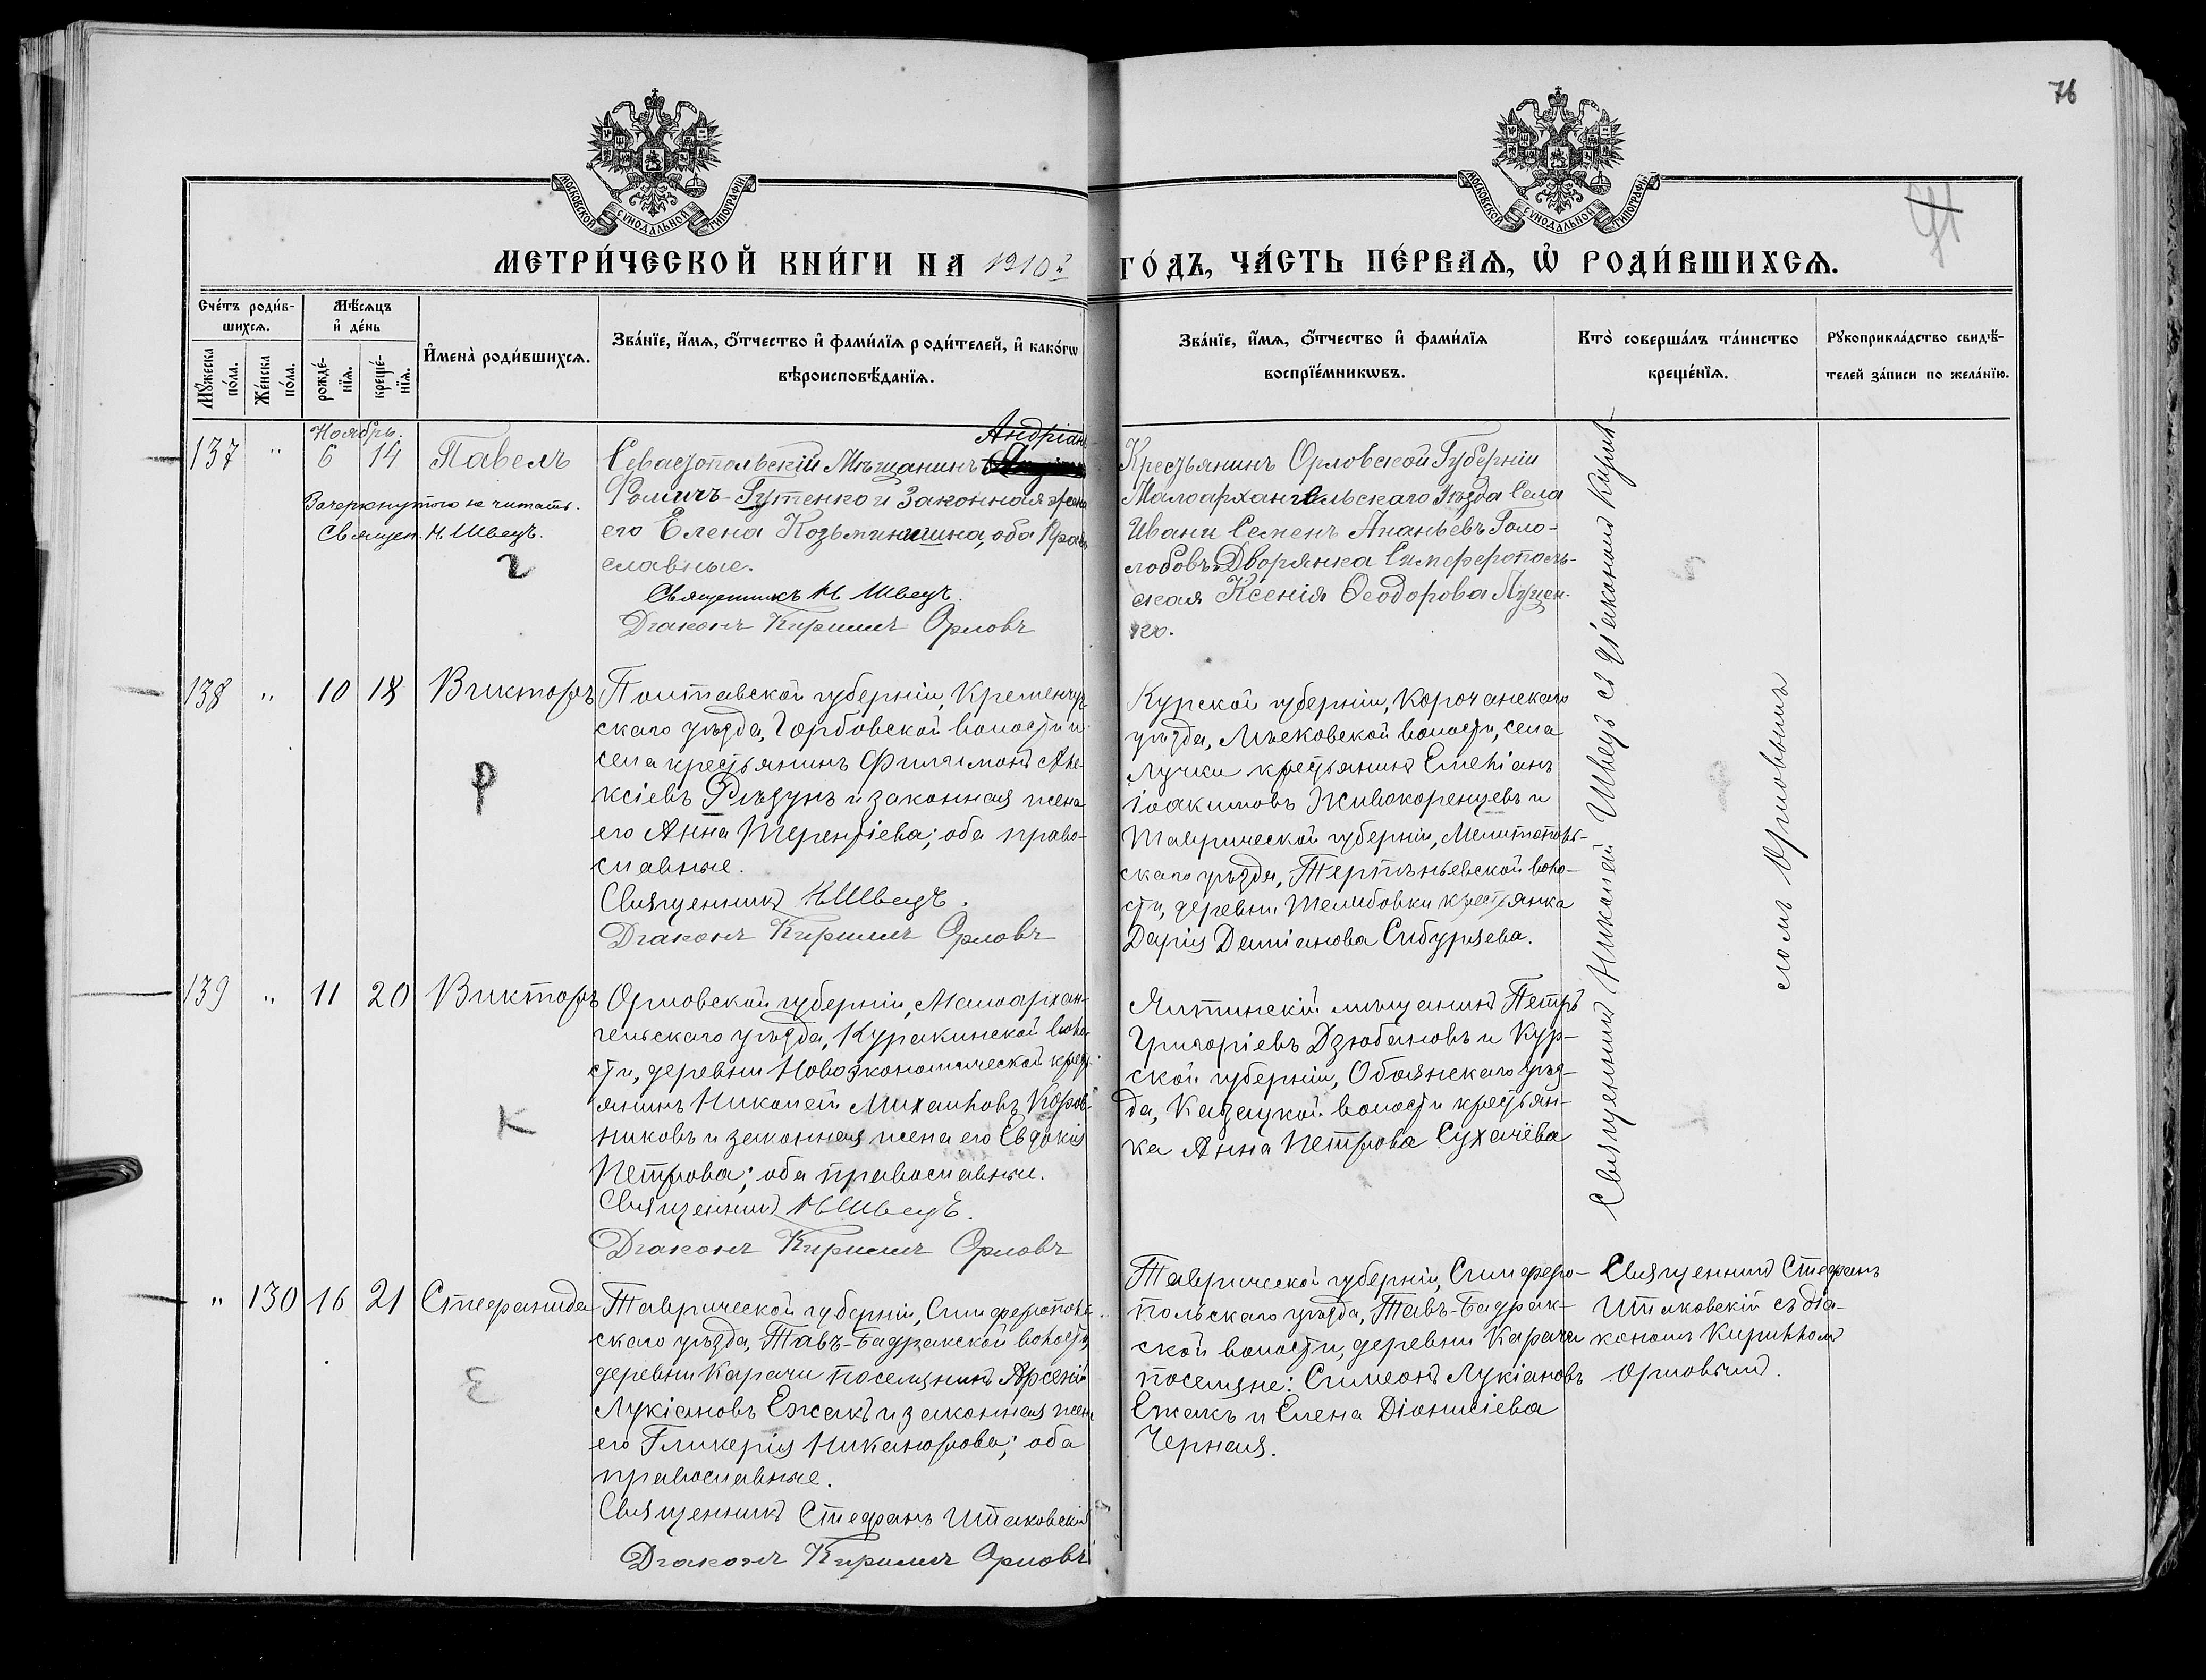 76
МОСКОВСКОЙ СУНОДАЛЬНОЙ ТИПОГРАФІИ
МОСКОВСКОЙ СУНОДАЛЬНОЙ ТИПОГРАФІИ
МЕТРИ́ЧЕСКОЙ КНИ́ГИ НА 1910й ГО́ДЪ, ЧА́СТЬ ПЕ́РВАѦ, Ѿ РОДИ́ВШИХСѦ.
Сче́тъ роди́в-
шихсѧ.
Мꙋ́жеска по́ла.
Же́нска по́ла.
Мѣ́сѧцъ
и҆ де́нь
рожде́-
нїѧ.
креще́-
нїѧ.
И҆мена̀ роди́вшихсѧ.
Зва́нїе, и҆́мѧ, ѻ҆́тчество и҆ фами́лїѧ роди́телей, и҆ како́гѡ
вѣроисповѣ́данїѧ.
Зва́нїе, и҆́мѧ, ѻ҆́тчество и҆ фами́лїѧ
воспрїе́мникѡвъ.
Кто̀ соверша́лъ та́инство
креще́нїѧ.
Рꙋкоприкла́дство свидѣ́-
телей за́писи по жела́нїю.
Ноябрь.
137 " 6 14 Павелъ
Зачеркнутого не читать.
Священ. Н. Швецъ.
Андріанъ
Севастопольскій Мѣщанинъ
Ромичъ-Гутенко и Законная жена
его Елена Козьминишна, оба Право
славные.
Священникъ Н Швецъ.
Діаконъ Кириллъ Орловъ
Крестьянинъ Орловской Губерніи
Малоархангельскаго Уѣзда Села
Ивани Семенъ Ананьевъ Голо-
лобовъ. Дворянка Симферополь-
ская Ксенія Ѳеодорова Луцен-
ко.
Священникъ Николай Швецъ съ діакономъ Кирил-
ломъ Орловымъ
138 " 10 18 Викторъ
Полтавской губерніи, Кременчуг-
скаго уѣзда, Горбовской волости и
села крестьянинъ Филимонъ Але-
ксіевъ Рѣдунъ и законная жена
его Анна Терентіева; оба право-
славные.
Священникъ Н Швецъ.
Діаконъ Кириллъ Орловъ
Р
Курской губерніи, Корочанскаго
уѣзда, Мѣсковской волости, села
Лучки крестьянинъ Емеліанъ
Іоакимовъ Живокоренцевъ и
Таврической губерніи, Мелитополь-
скаго уѣзда, Терпѣньевской воло-
сти, деревни крестьянка
Дарія Даміанова Сибуряева.
139 " 11 20 Викторъ
Орловской губерніи, Малоархан-
гельскаго уѣзда, Куракинской воло-
сти, деревни Новоэкономической крест-
янинъ Николай Михаиловъ Коров-
никовъ и законная жена его Евдокія
Петрова; оба православные.
Священникъ Н Швецъ.
Діаконъ Кириллъ Орловъ
К
Ялтинскій мѣщанинъ Петръ
Григоріевъ Дзюбановъ и Кур-
ской губерніи, Обоянскаго уѣз-
да, Казацкой волости крестьян-
ка Анна Петрова Сухачёва
" 130 16 21 Стефанида
Таврической губерніи, Симферополь-
скаго уѣзда, Тавъ-Бадракской волости,
деревни Карачи поселянинъ Арсеній
Лукіановъ Ежакъ и законная жена
его Гликерія Никанорова; оба
православные.
Священникъ Стефанъ Шпаковскій
Діаконъ Кириллъ Орловъ
Е
Таврической губерніи, Симферо-
польскаго уѣзда, Тавъ-Бадрак-
ской волости, деревни Карачи
поселяне: Симеонъ Лукіановъ
Ежакъ и Елена Діонисіева
Черная.
Священникъ Стефанъ
Шпаковскій съ діа-
кономъ Кирилломъ
Орловымъ.